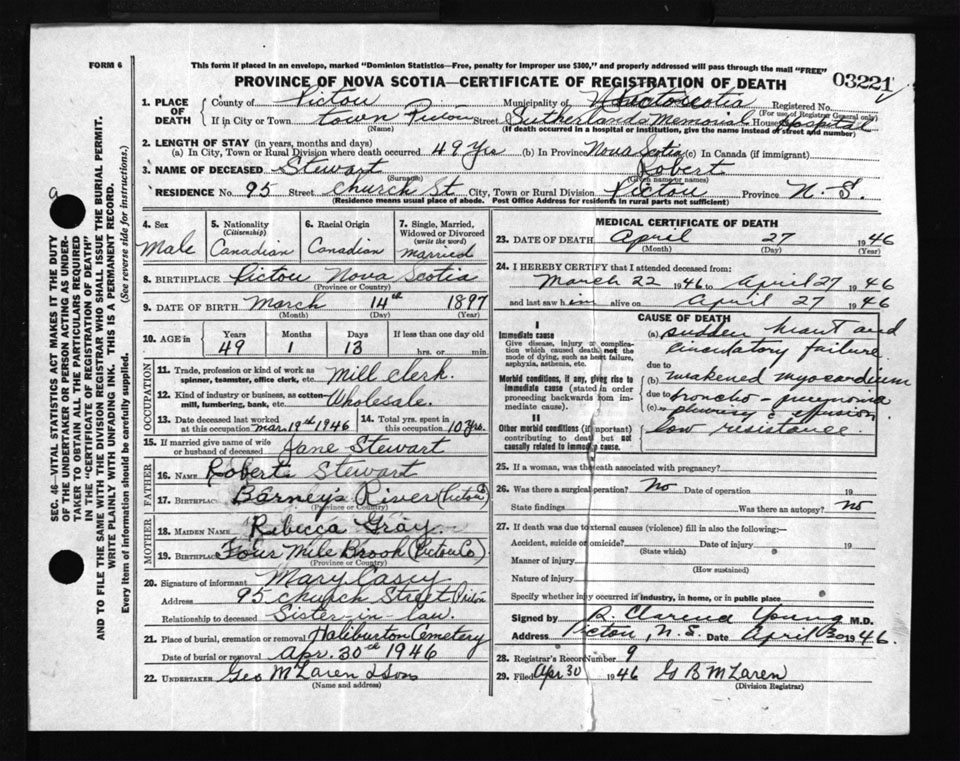 FORM 6
This form if placed in an envelope, marked "Dominion Statistics—Free, penalty for improper use $300," and properly addressed will pass through the mail "FREE"
PROVINCE OF NOVA SCOTIA—CERTIFICATE OF REGISTRATION OF DEATH
03221
1. PLACE OF DEATH
County of Pictou Municipality of Registered No.
(For use of Registrar General only)
If in City or Town town Pictou Street Sutherlands Memorial House Hospital
(Name) (If death occurred in a hospital or institution, give the name instead of street and number)
2. LENGTH OF STAY (in years, months and days)
(a) In City, Town or Rural Division where death occurred 49 Yrs (b) In Province Nova Scotia (c) In Canada (if immigrant)
3. NAME OF DECEASED Stewart Robert
(Surname) (Given name or names)
RESIDENCE No. 95 Street Church St City, Town or Rural Division Pictou Province N.S.
(Residence means usual place of abode. Post Office Address for residents in rural parts not sufficient)
4. Sex Male
5. Nationality (Citizenship) Canadian
6. Racial Origin Canadian
7. Single, Married, Widowed or Divorced (write the word) married
8. BIRTHPLACE Pictou Nova Scotia
(Province or Country)
9. DATE OF BIRTH March 14th 1897
(Month) (Day) (Year)
10. AGE in Years 49 Months 1 Days 13 If less than one day old
hrs. or min.
OCCUPATION
11. Trade, profession or kind of work as spinner, teamster, office clerk, etc. Mill clerk.
12. Kind of industry or business, as cotton mill, lumbering, bank, etc. Wholesale.
13. Date deceased last worked at this occupation mar. 19th 1946
14. Total yrs. spent in this occupation 10 Yrs.
15. If married give name of wife or husband of deceased Jane Stewart
FATHER
16. NAME Robert Stewart
17. BIRTHPLACE Barney's River (Pictou Co)
(Province or Country)
MOTHER
18. MAIDEN NAME Ribecca Gray.
19. BIRTHPLACE Four Mile Brook (Pictou Co)
(Province or Country)
20. Signature of informant Mary Casey
Address 95 Church Street Pictou
Relationship to deceased Sister-in-law.
21. Place of burial, cremation or removal Haliburton Cemetery
Date of burial or removal Apr. 30th 1946
22. UNDERTAKER Geo McLaren & Sons
(Name and address)
MEDICAL CERTIFICATE OF DEATH
23. DATE OF DEATH April 27 1946
(Month) (Day) (Year)
24. I HEREBY CERTIFY that I attended deceased from:
March 22 1946 to April 27 1946
and last saw him alive on April 27 1946
CAUSE OF DEATH
I
Immediate cause
Give disease, injury or complication which caused death, not the mode of dying, such as heart failure, asphyxia, asthenia, etc.
(a) sudden heart and circulatory failure
due to
Morbid conditions, if any, giving rise to immediate cause (stated in order proceeding backwards from immediate cause).
(b) weakened myocardium
due to broncho-pneumonia
(c) pleurisy & effusion
II
Other morbid conditions (if important) contributing to death but not causally related to immediate cause.
low resistance.
25. If a woman, was the death associated with pregnancy?
26. Was there a surgical operation? No Date of operation 19
State findings Was there an autopsy? no
27. If death was due to external causes (violence) fill in also the following:—
Accident, suicide or omicide? Date of injury 19
(State which)
Manner of injury
(How sustained)
Nature of injury
Specify whether injury occurred in industry, in home, or in public place
Signed by R. Clarence Young M.D.
Address Pictou, N.S. Date April 30 1946.
28. Registrar's Record Number 9
29. Filed Apr 30 1946 G B McLaren
(Division Registrar)
SEC. 46—VITAL STATISTICS ACT MAKES IT THE DUTY
OF THE UNDERTAKER OR PERSON ACTING AS UNDERTAKER
TAKER TO OBTAIN ALL THE PARTICULARS REQUIRED
IN THE "CERTIFICATE OF REGISTRATION OF DEATH"
AND TO FILE THE SAME WITH THE DIVISION REGISTRAR WHO SHALL ISSUE THE BURIAL PERMIT.
WRITE PLAINLY WITH UNFADING INK. THIS IS A PERMANENT RECORD.
Every item of information should be carefully supplied. (See reverse side for instructions.)